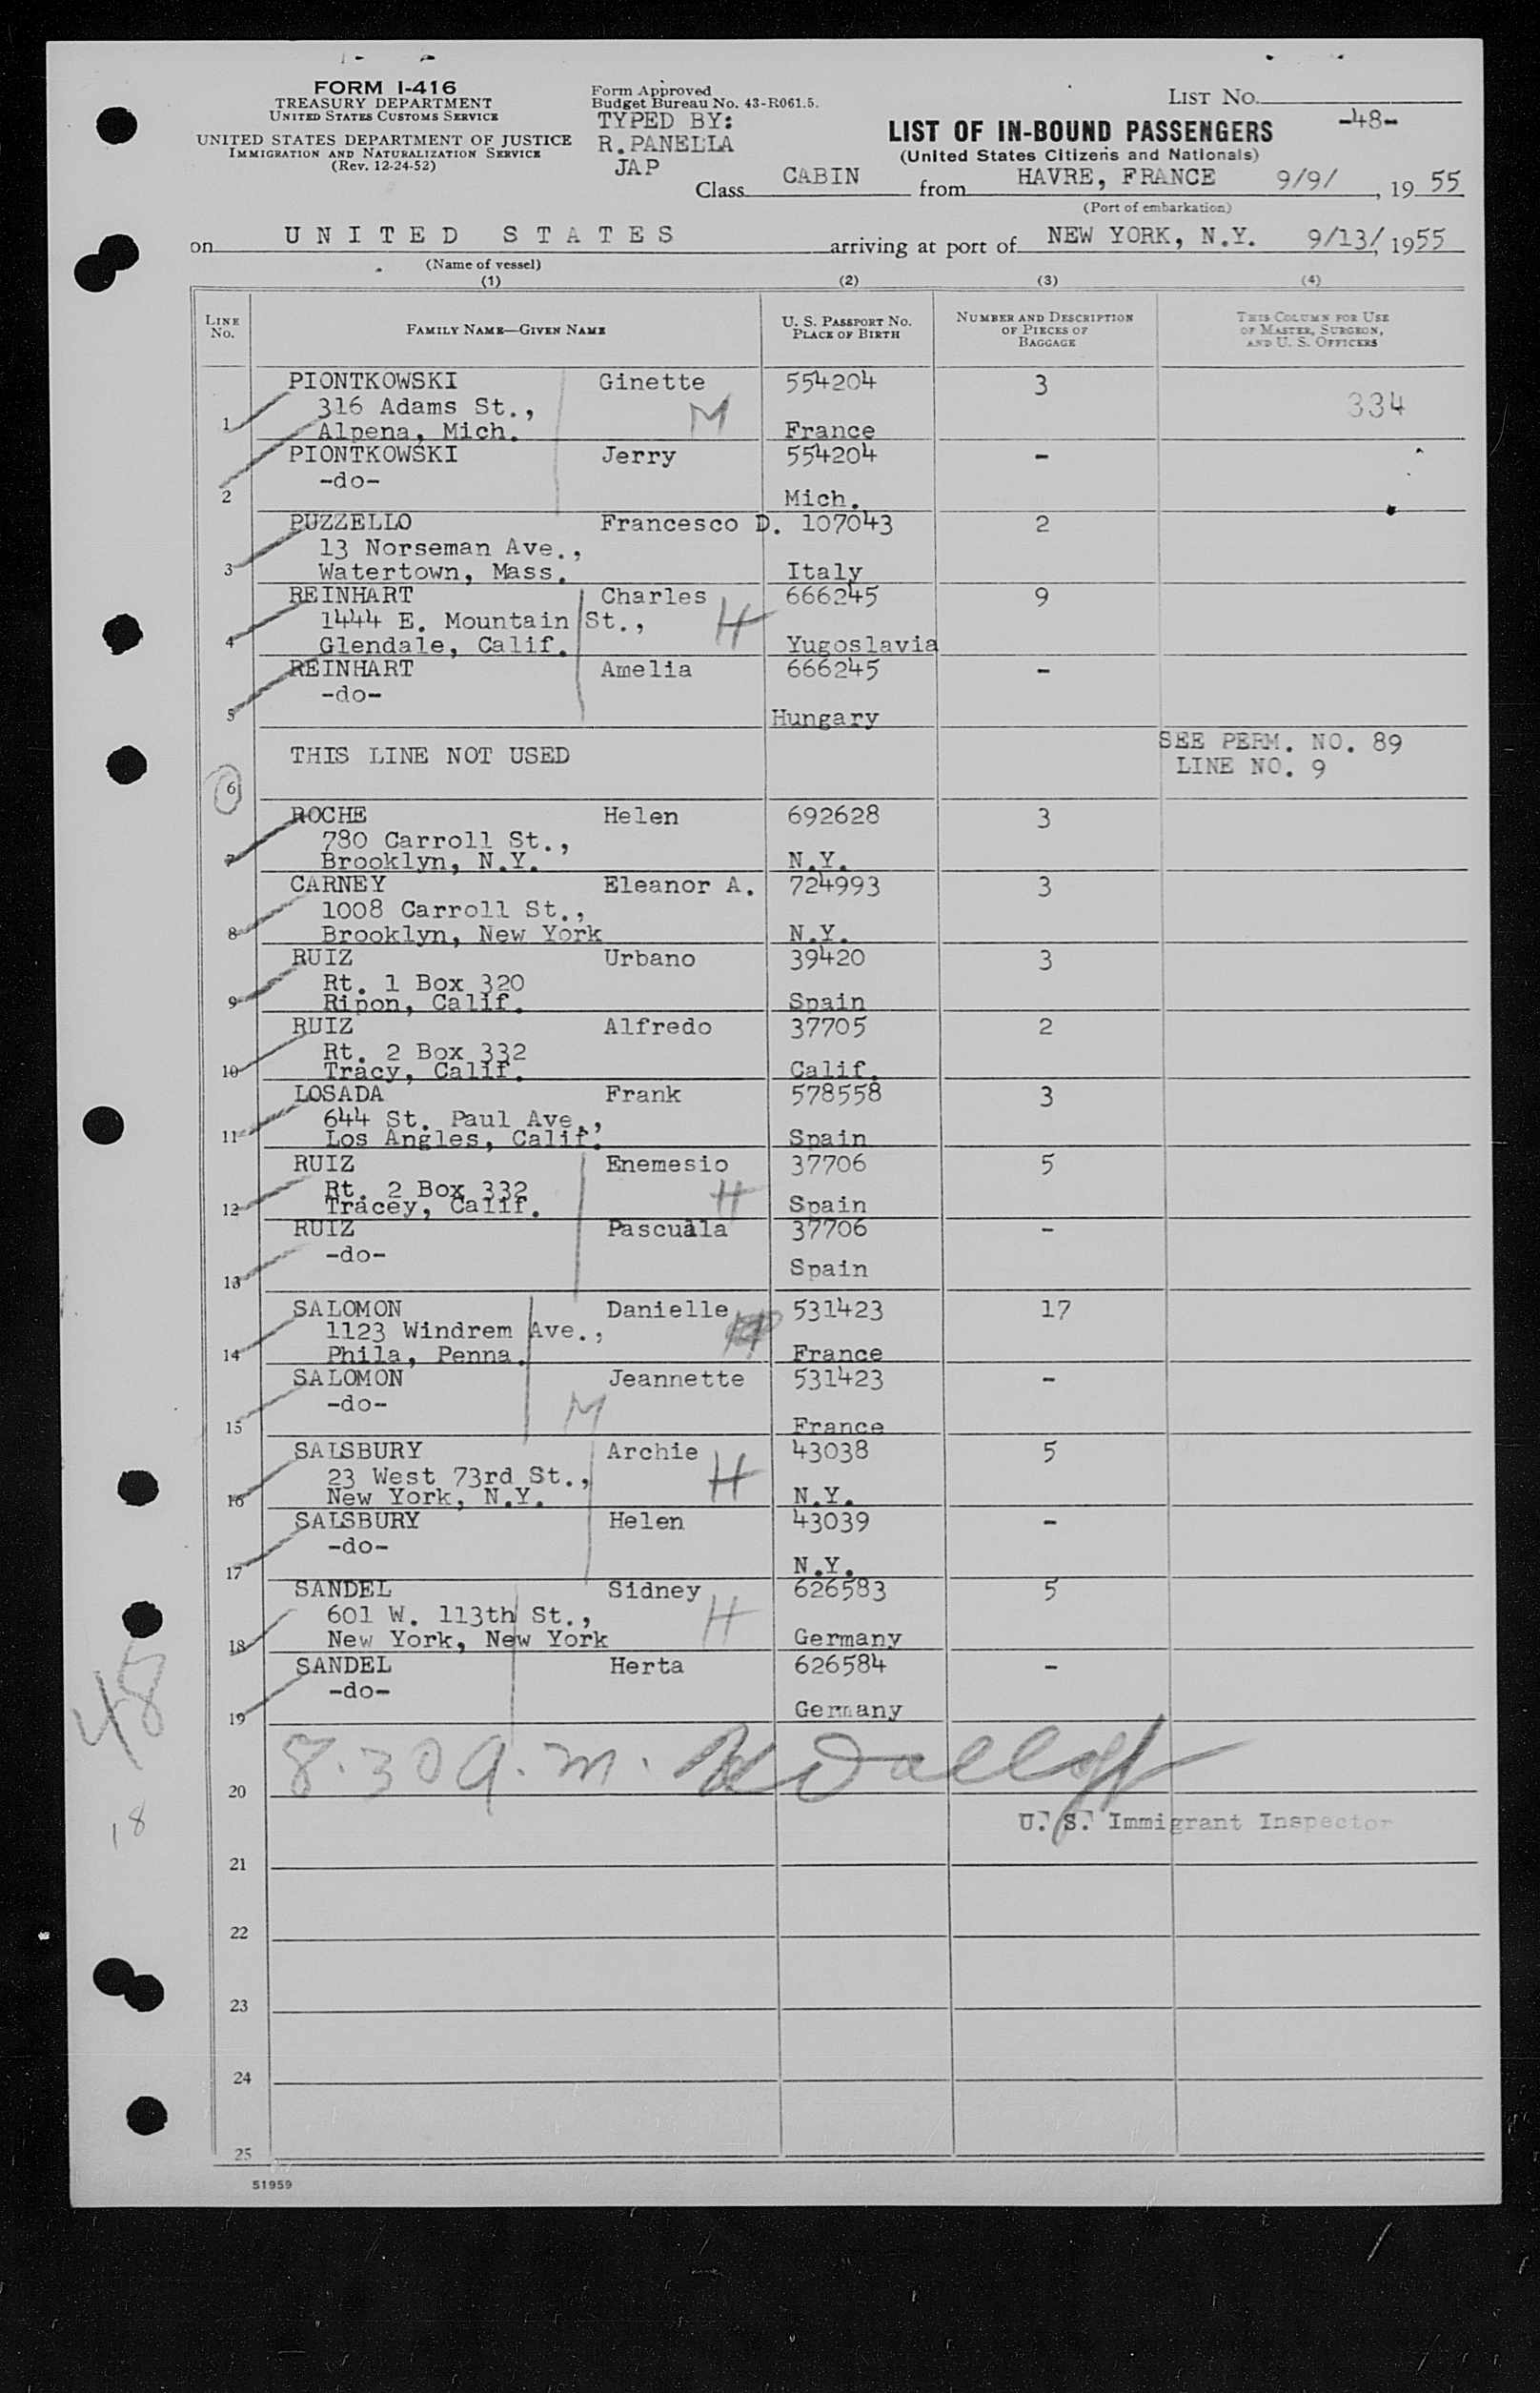 FORM I-416
TREASURY DEPARTMENT
UNITED STATES CUSTOMS SERVICE
UNITED STATES DEPARTMENT OF JUSTICE
IMMIGRATION AND NATURALIZATION SERVICE
(Rev. 12-24-52)
Form Approved
Budget Bureau No. 43-R061.5.
TYPED BY:
R.PANELLA
JAP
LIST NO.
-48-
LIST OF IN-BOUND PASSENGERS
(United States Citizens and Nationals)
Class CABIN from HAVRE, FRANCE 9/9/, 19 55
(Port of embarkation)
on UNITED STATES arriving at port of NEW YORK, N.Y. 9/13/, 1955
(Name of vessel)
(1) (2) (3) (4)
LINE NO. FAMILY NAME—GIVEN NAME U. S. PASSPORT NO. PLACE OF BIRTH NUMBER AND DESCRIPTION OF PIECES OF BAGGAGE THIS COLUMN FOR USE OF MASTER, SURGEON, AND U. S. OFFICERS
PIONTKOWSKI Ginette 554204 3
316 Adams St., M 334
1 Alpena, Mich. France
PIONTKOWSKI Jerry 554204 -
-do-
2 Mich.
PUZZELLO Francesco D. 107043 2
13 Norseman Ave.,
3 Watertown, Mass. Italy
REINHART Charles 666245 9
1444 E. Mountain St., H
4 Glendale, Calif. Yugoslavia
REINHART Amelia 666245 -
-do-
5 Hungary
THIS LINE NOT USED SEE PERM. NO. 89
6 LINE NO. 9
ROCHE Helen 692628 3
780 Carroll St.,
7 Brooklyn, N.Y. N.Y.
CARNEY Eleanor A. 724993 3
1008 Carroll St.,
8 Brooklyn, New York N.Y.
RUIZ Urbano 39420 3
Rt. 1 Box 320
9 Ripon, Calif. Spain
RUIZ Alfredo 37705 2
Rt. 2 Box 332
10 Tracy, Calif. Calif.
LOSADA Frank 578558 3
644 St. Paul Ave.,
11 Los Angles, Calif. Spain
RUIZ Enemesio 37706 5
Rt. 2 Box 332 H
12 Tracey, Calif. Spain
RUIZ Pascuala 37706 -
-do-
13 Spain
SALOMON Danielle 531423 17
1123 Windrem Ave.,
14 Phila, Penna. France
SALOMON Jeannette 531423 -
-do- M
15 France
SALSBURY Archie 43038 5
23 West 73rd St., H
16 New York, N.Y. N.Y.
SALSBURY Helen 43039 -
-do-
17 N.Y.
SANDEL Sidney 626583 5
601 W. 113th St., H
18 New York, New York Germany
SANDEL Herta 626584 -
-do-
19 Germany
48
8.30 a.m.
20
18
U. S. Immigrant Inspector
21
22
23
24
25
51959